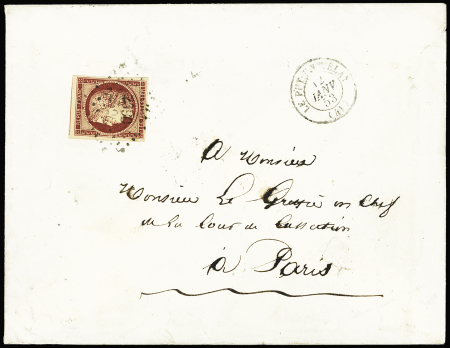 LE PUY-EN-VELAY
JANV
A Monsieur
Monsieur Le Greffier en Chef
de la Cour de Cassation
à Paris